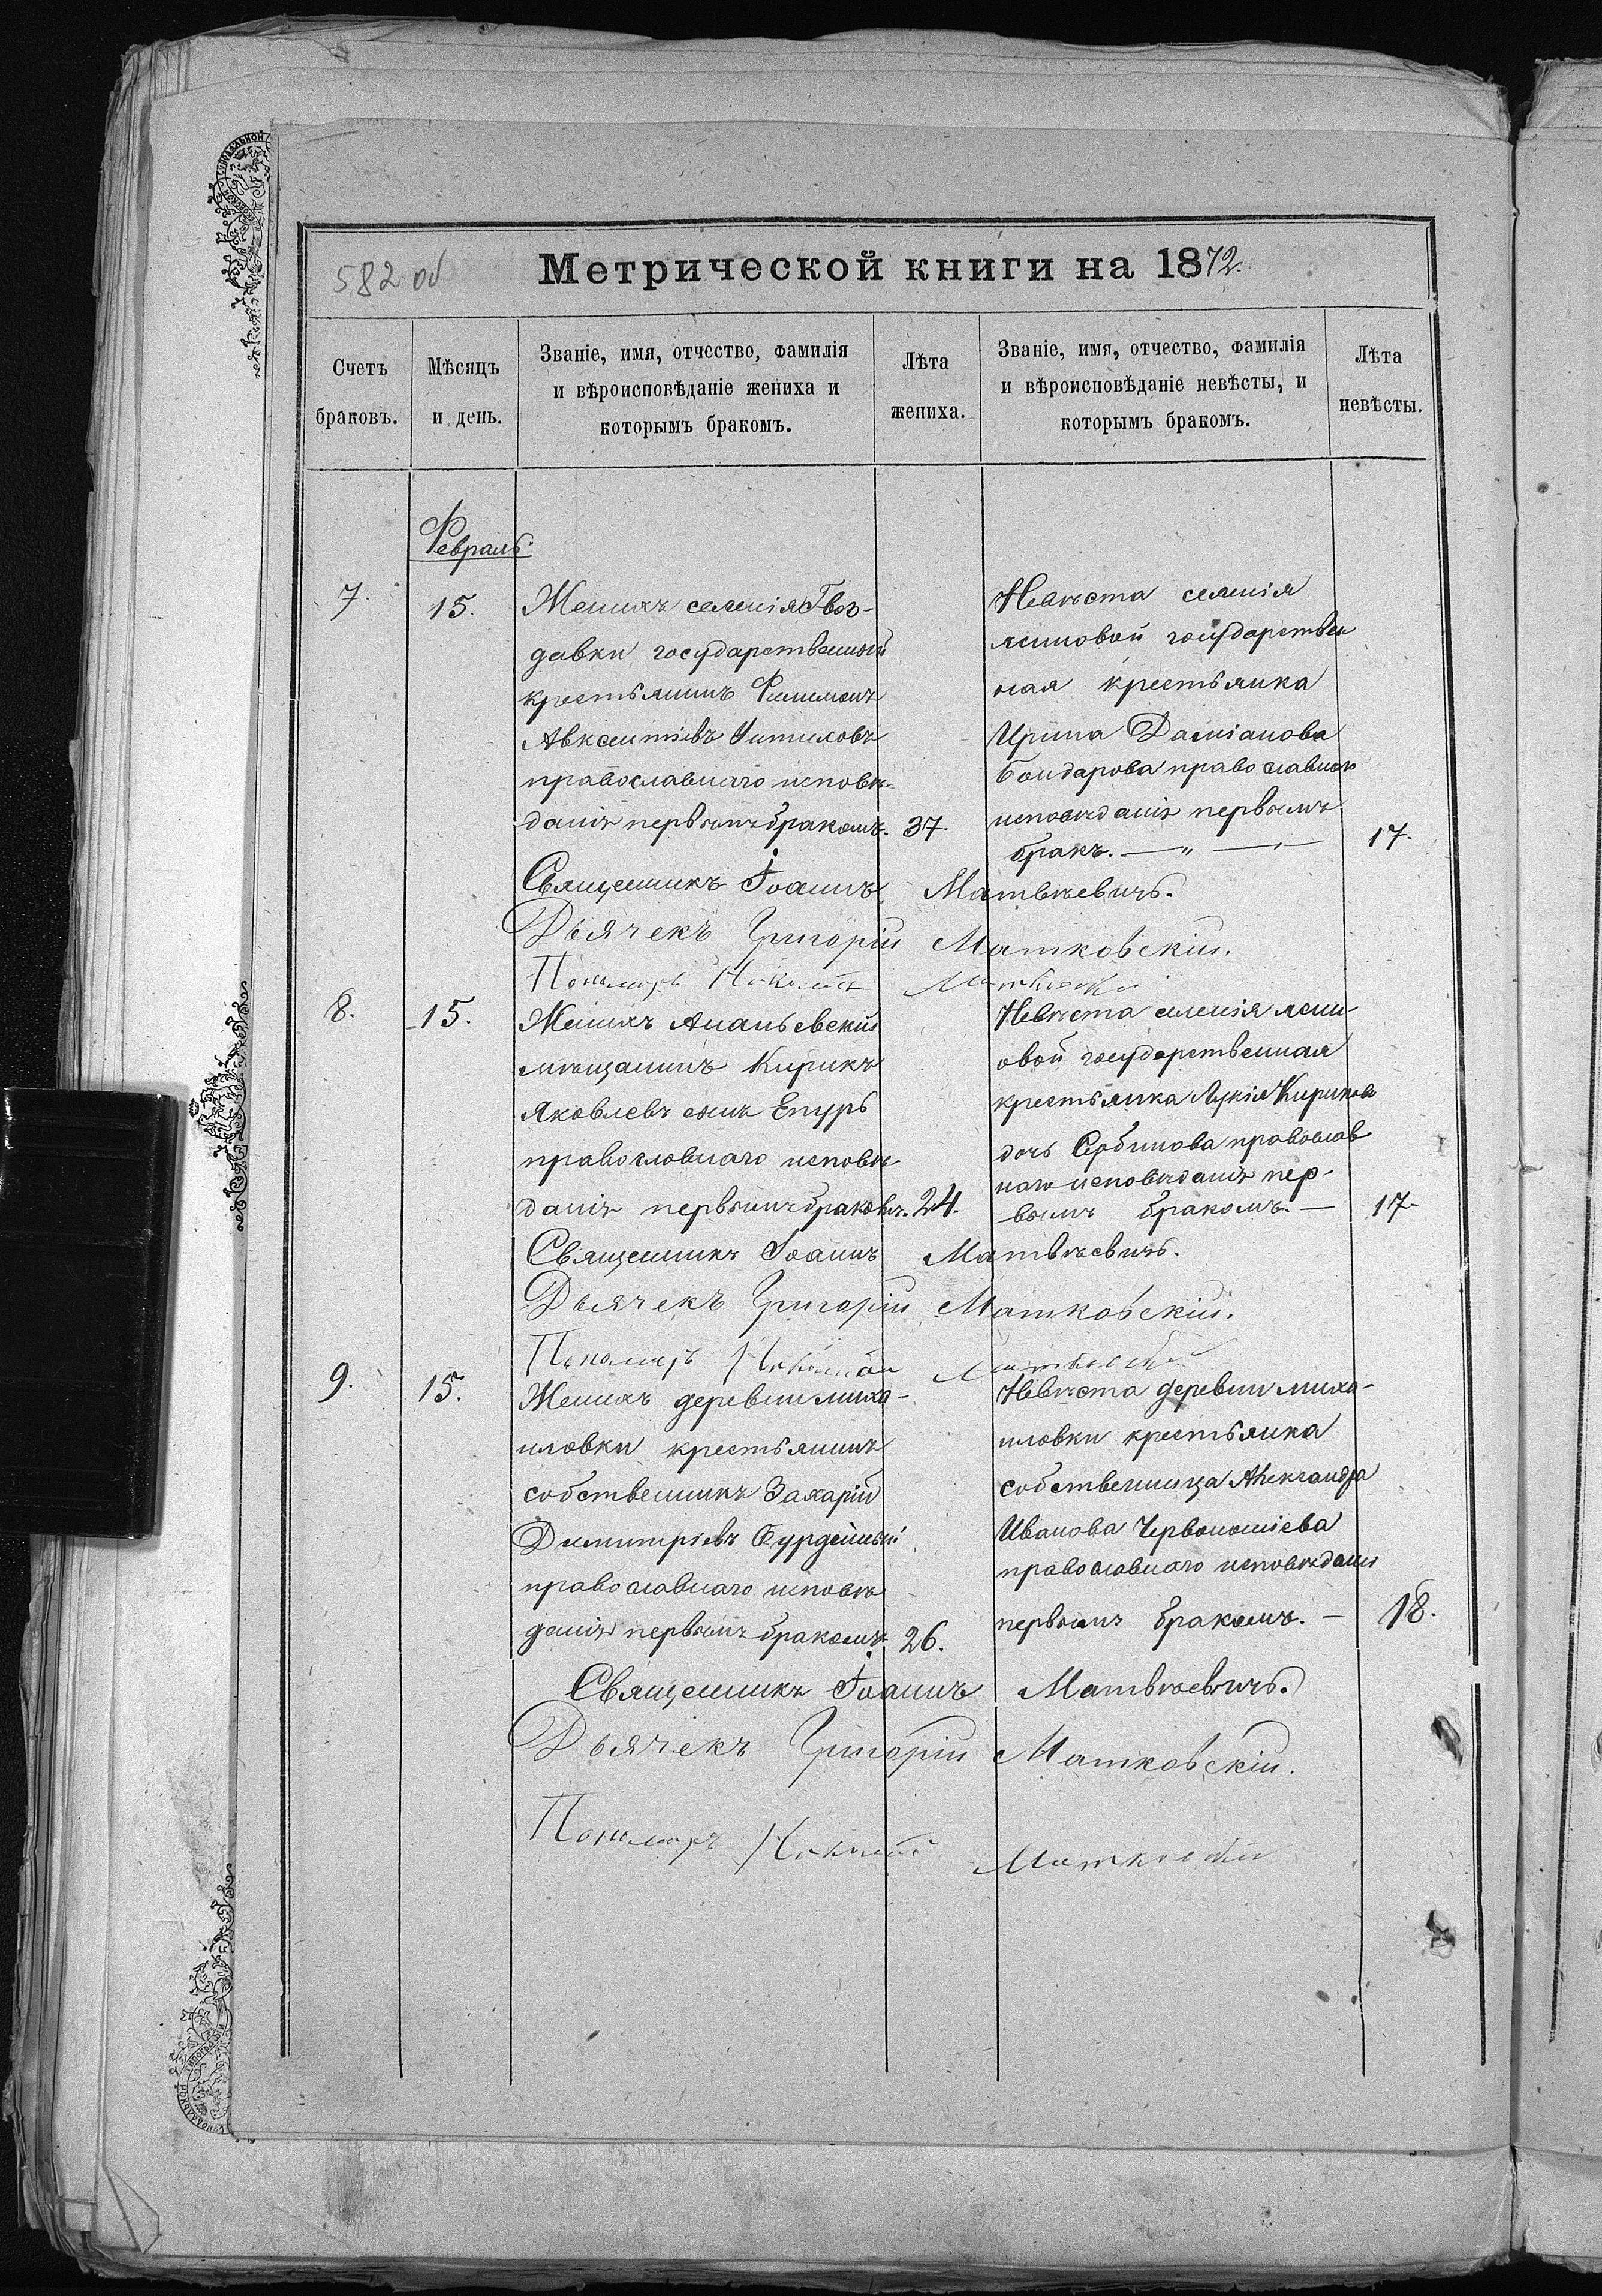 582 об
Метрической книги на 1872.
Счетъ браковъ.
Мѣсяцъ и день.
Званіе, имя, отчество, фамилія
и вѣроисповѣданіе жениха и
которымъ бракомъ.
Лѣта жениха.
Званіе, имя, отчество, фамилія
и вѣроисповѣданіе невѣсты, и
которымъ бракомъ.
Лѣта невѣсты.
Февраль.
7.
15.
Женихъ селенія Гвоз-
давки государственный
крестьянинъ Филимонъ
Авксентіевъ
православнаго исповѣ-
данія первымъ бракомъ.
37.
Невѣста селенія
ясиновой государствен
ная крестьянка
Ирина Даміанова
Бондарова православнаго
исповѣданія первымъ
бракъ. — „ —
17.
Священникъ Іоаннъ Матвѣевичъ.
Дьячекъ Григорій Матковскій.
Пономарь Николай Матковскій
8.
15.
Женихъ Ананьевскій
мѣщанинъ Кирикъ
Яковлевъ сынъ Епуръ
православнаго исповѣ-
данія первымъ бракомъ.
24.
Невѣста селенія ясин-
овой государственная
крестьянка Лукія Кирикова
дочь Сербинова православ
наго исповѣданія пер-
вымъ бракомъ. —
17
Священникъ Іоаннъ Матвѣевичъ.
Дьячекъ Григорій Матковскій.
Пономарь Николай Матковскій
9.
15.
Женихъ деревни миха-
иловки крестьянинъ
собственникъ Захарій
Димитріевъ Бурдейный
православнаго исповѣ
данія первымъ бракомъ
26.
Невѣста деревни миха-
иловки крестьянка
собственница Александра
Иванова
православнаго исповѣданія
первымъ бракомъ. —
18.
Священникъ Іоаннъ Матвѣевичъ.
Дьячекъ Григорій Матковскій.
Пономарь Николай Матковскій